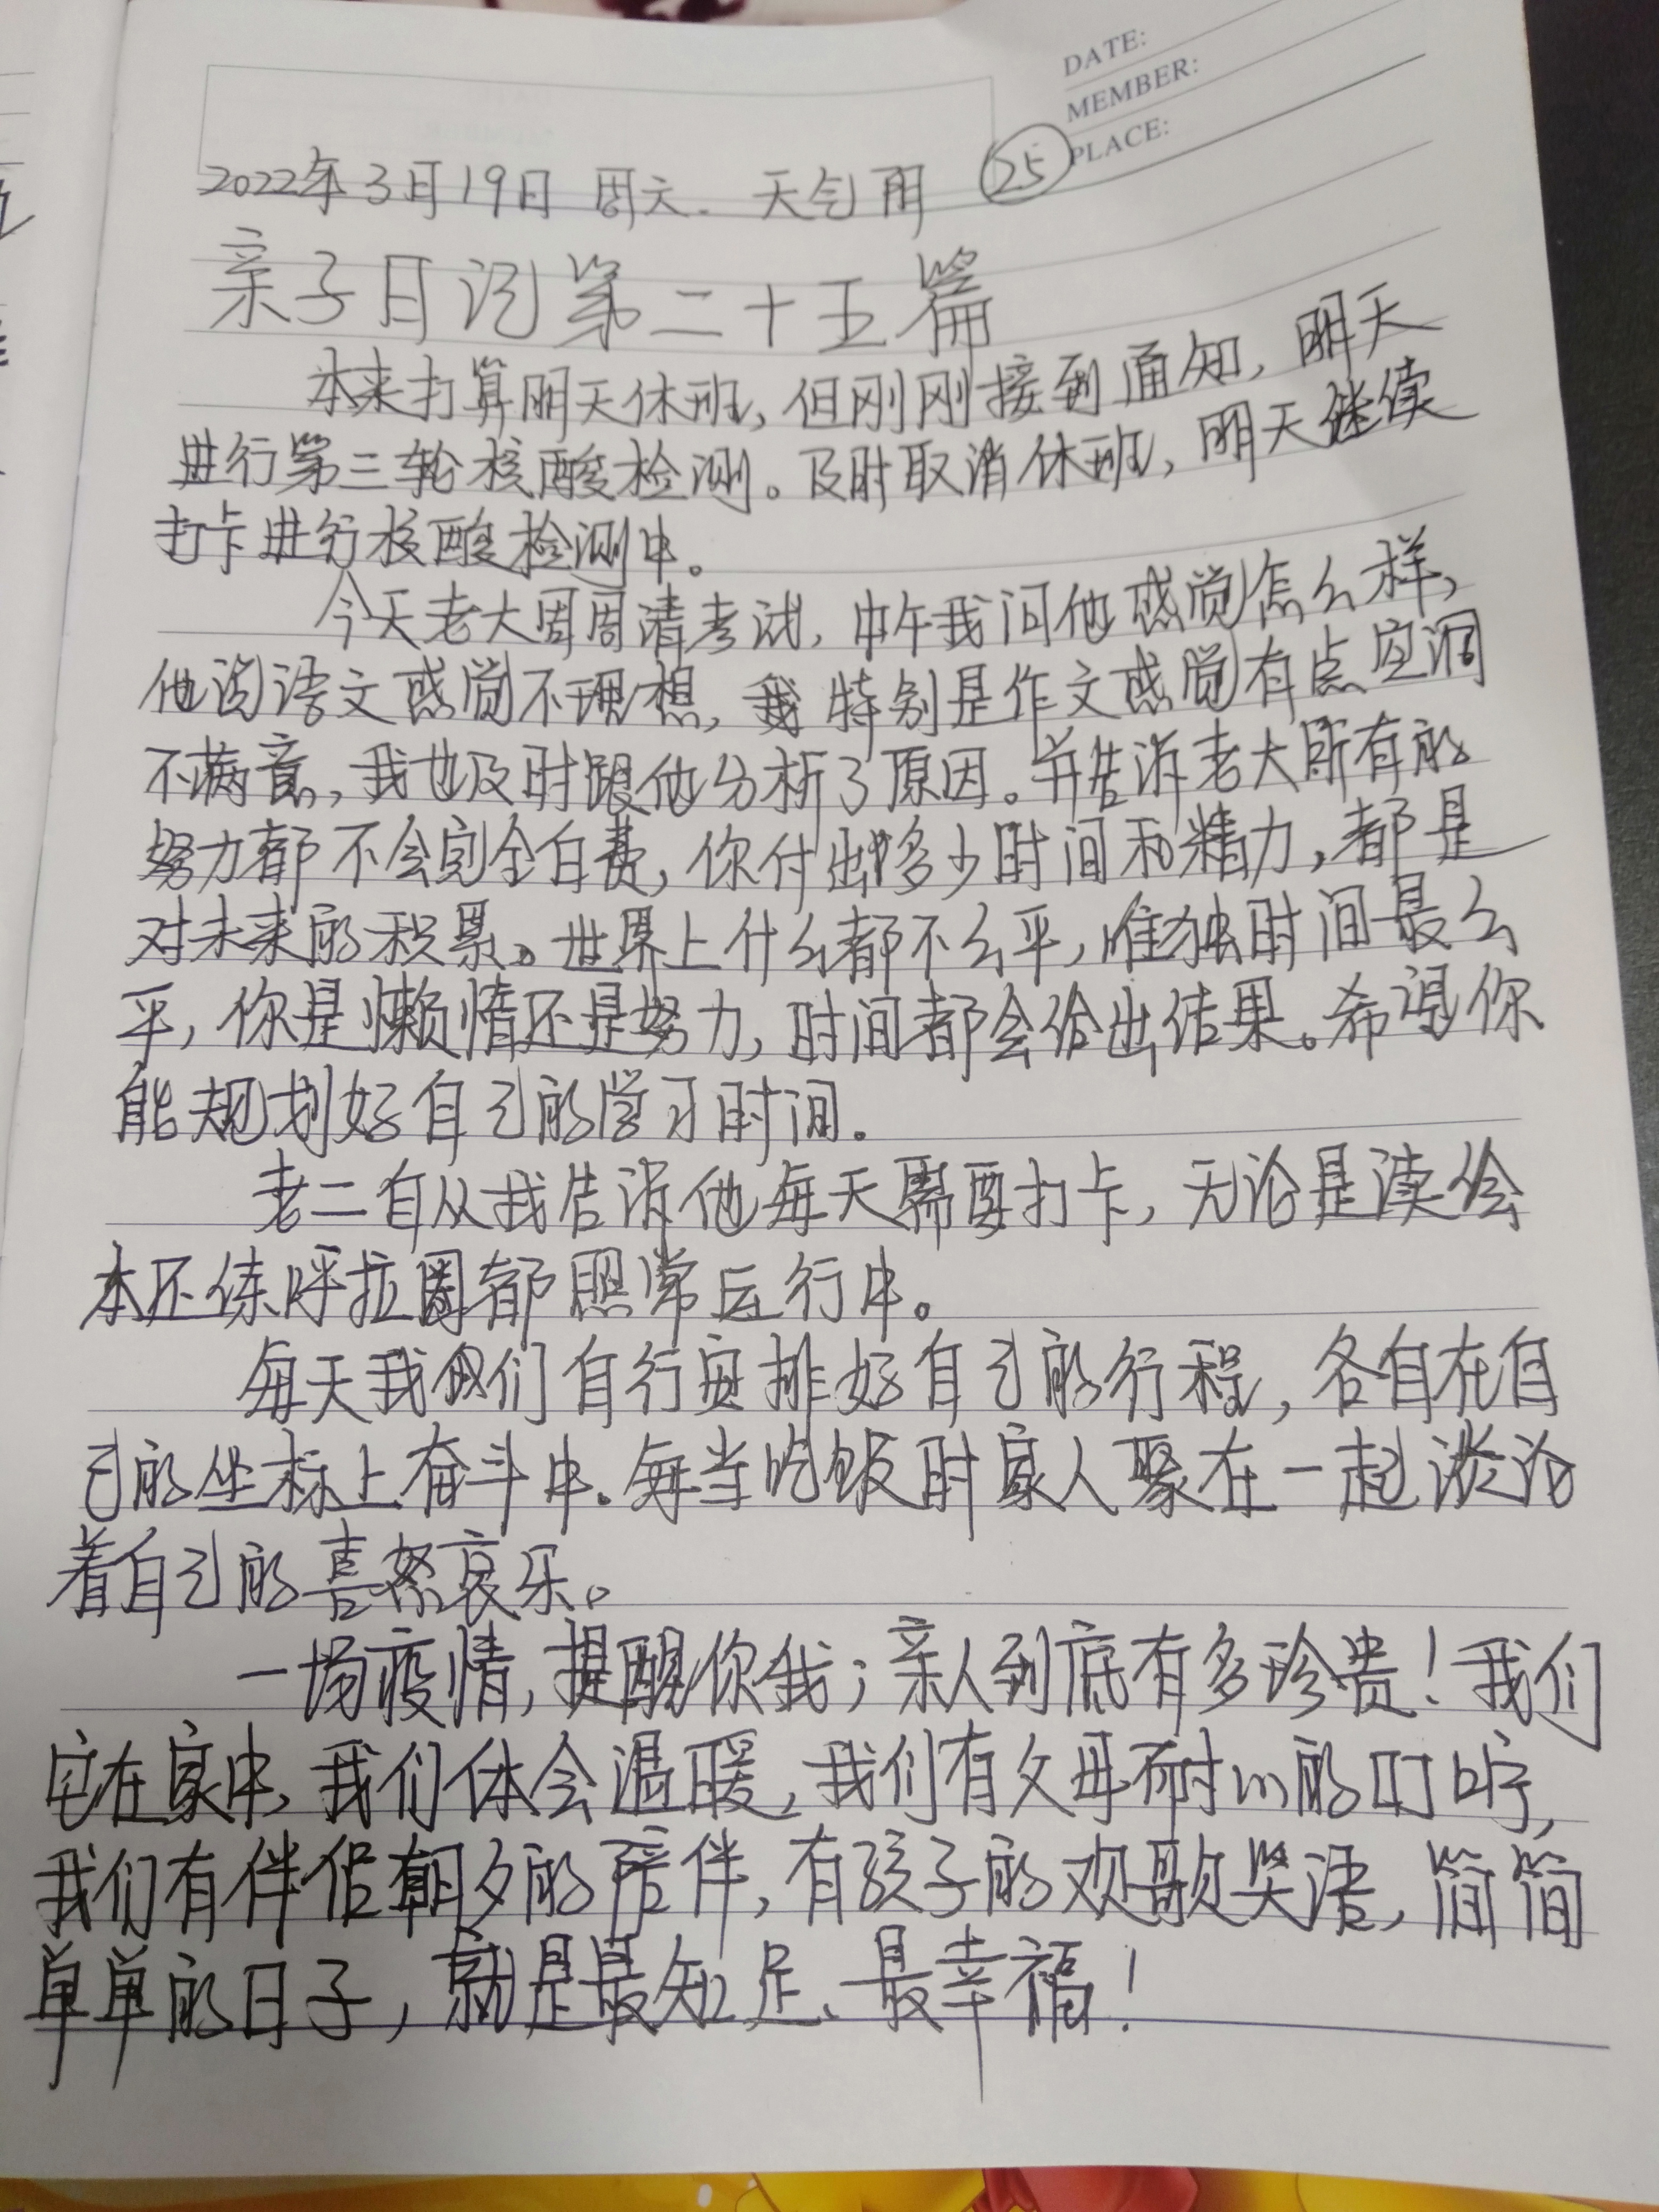 DATE:
MEMBER:
PLACE:
2022年3月19日 周六. 天气雨 25
亲子日记第二十五篇
本来打算明天休班,但刚刚接到通知,明天
进行第三轮核酸检测。及时取消休班,明天继续
打卡进行核酸检测中。
今天老大周周清考试,中午我问他感觉怎么样,
他说语文感觉不理想,我特别是作文感觉有点空洞
不满意,我也及时跟他分析了原因。并告诉老大所有的
努力都不会完全白费,你付出多少时间和精力,都是
对未来的积累。世界上什么都不公平,唯独时间最公
平,你是懒惰还是努力,时间都会给出结果。希望你
能规划好自己的学习时间。
老二自从我告诉他每天需要打卡,无论是读绘
本还练呼拉圈都照常运行中。
每天我们自行安排好自己的行程,各自在自
己的坐标上奋斗中。每当吃饭时家人聚在一起谈论
着自己的喜怒哀乐。
一场疫情,提醒你我;亲人到底有多珍贵!我们
宅在家中,我们体会温暖,我们有父母耐心的叮咛,
我们有伴侣朝夕的陪伴,有孩子的欢歌笑语,简简
单单的日子,就是最知足、最幸福!